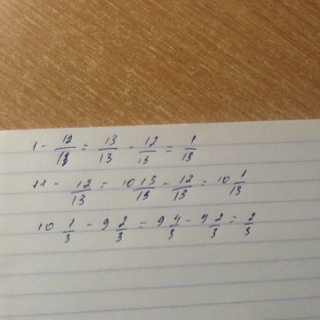 1 - 12/13 = 13/13 - 12/13 = 1/13
11 - 12/13 = 10 13/13 - 12/13 = 10 1/13
10 1/3 - 9 2/3 = 9 4/3 - 9 2/3 = 2/3